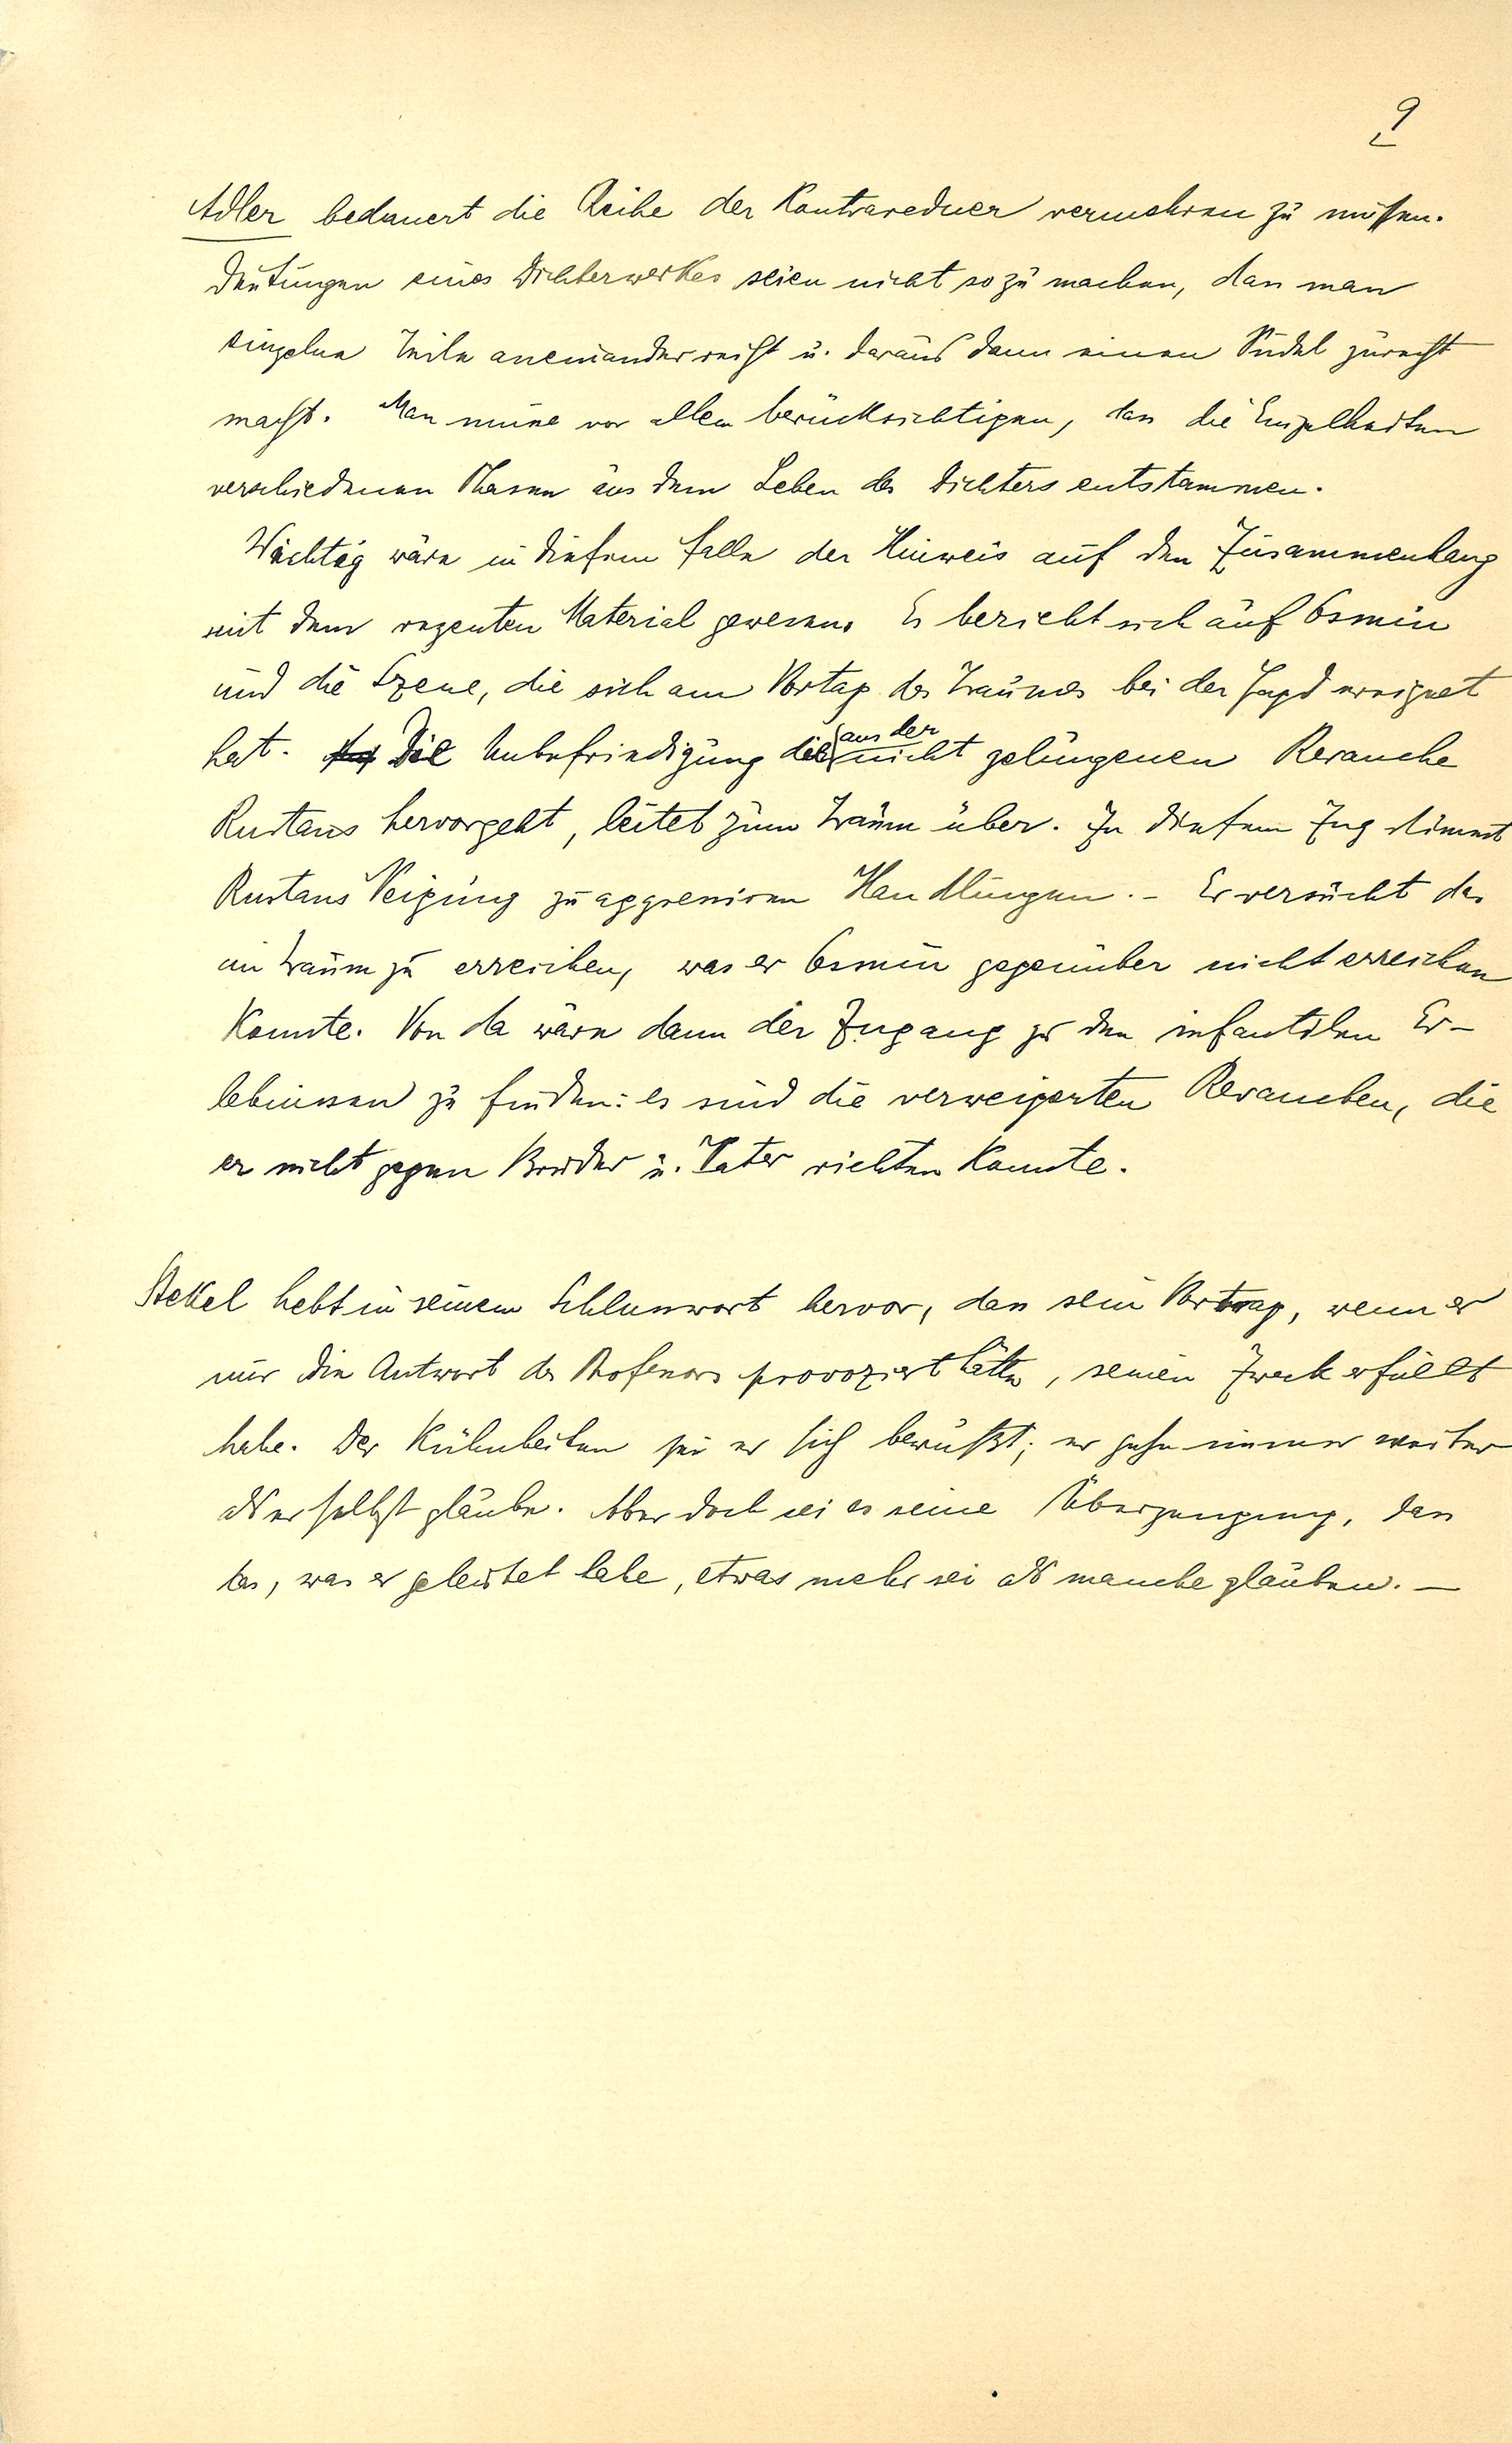 9
Adler bedauert die Reihe der Kontraredner vermehren zu müssen.
Deutungen eines Dichterwerkes seien nicht so zu machen, dass man
einzelne Teile aneinanderreiht u. daraus dann einen Sudel zurecht
macht. Man müsse vor allem berücksichtigen, dass die Einzelheiten
verschiedenen Phasen aus dem Leben des Dichters entstammen.
Wichtig wäre in diesem Falle der Hinweis auf den Zusammenhang
mit dem rezenten Material gewesen. Es bezieht sich auf Osmin
und die Szene, die sich am Vortag des Traumes bei der Jagd ereignet
aus der
hat. Die Unbefriedigung die nicht gelungenen Revanche
Rustans hervorgeht, leitet zum Traum über. Zu diesem Zug stimmt
Rustans Neigung zu aggressiven Handlungen. – Er versucht das
im Traum zu erreichen, was er Osmin gegenüber nicht erreichen
konnte. Von da wäre dann der Zugang zu den infantilen Er-
lebnissen zu finden: es sind die verweigerten Revanchen, die
er nicht gegen Bruder u. Vater richten konnte.
Stekel hebt in seinem Schlusswort hervor, dass sein Vortrag, wenn er
nur die Antwort des Professors provoziert hätte, seinen Zweck erfüllt
habe. Der Kühnheiten sei er sich bewußt; er gehe immer weiter
als er selbst glaube. Aber doch sei es seine Überzeugung, dass
das, was er geleistet habe, etwas mehr sei als manche glauben. —